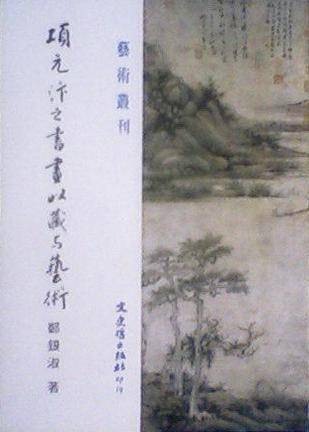 藝術叢刊
項元汴之書畫收藏與藝術
鄭銀淑 著
文史哲出版社 印行